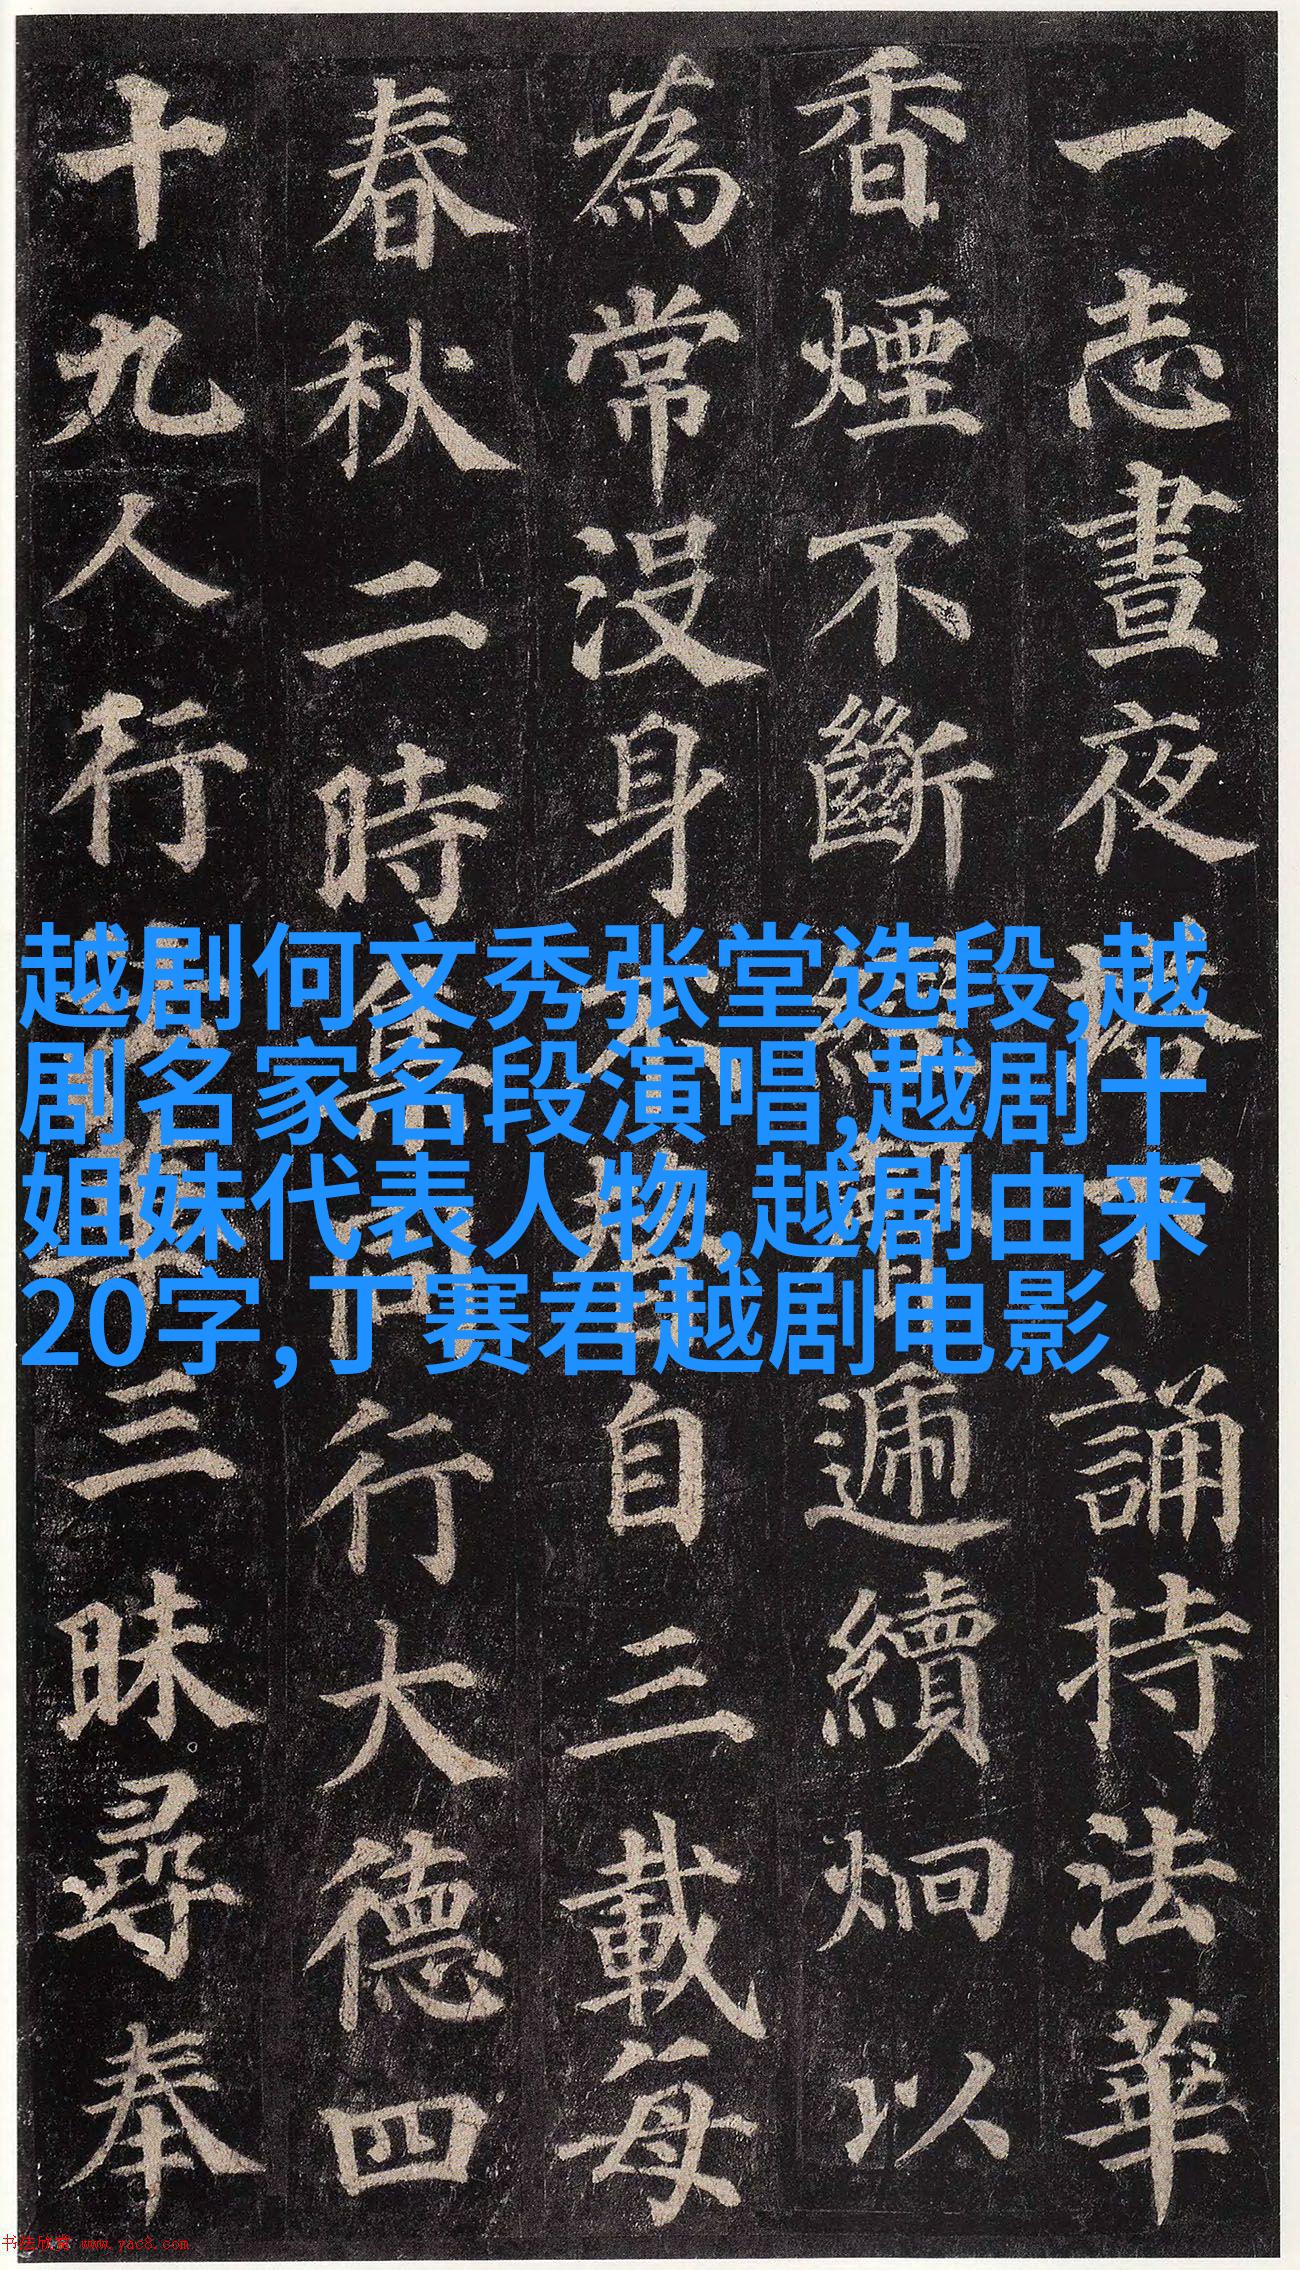 一志晝夜塔下誦持法華
香煙不斷經聲遞續炯以
為常沒身不替自三載每
春秋二時集同行大德四
十九人行法華三昧尋奉
越剧何文秀张堂选段,越
剧名家名段演唱,越剧十
姐妹代表人物,越剧由来
20字,丁赛君越剧电影
书法欣赏 www.yac8.com